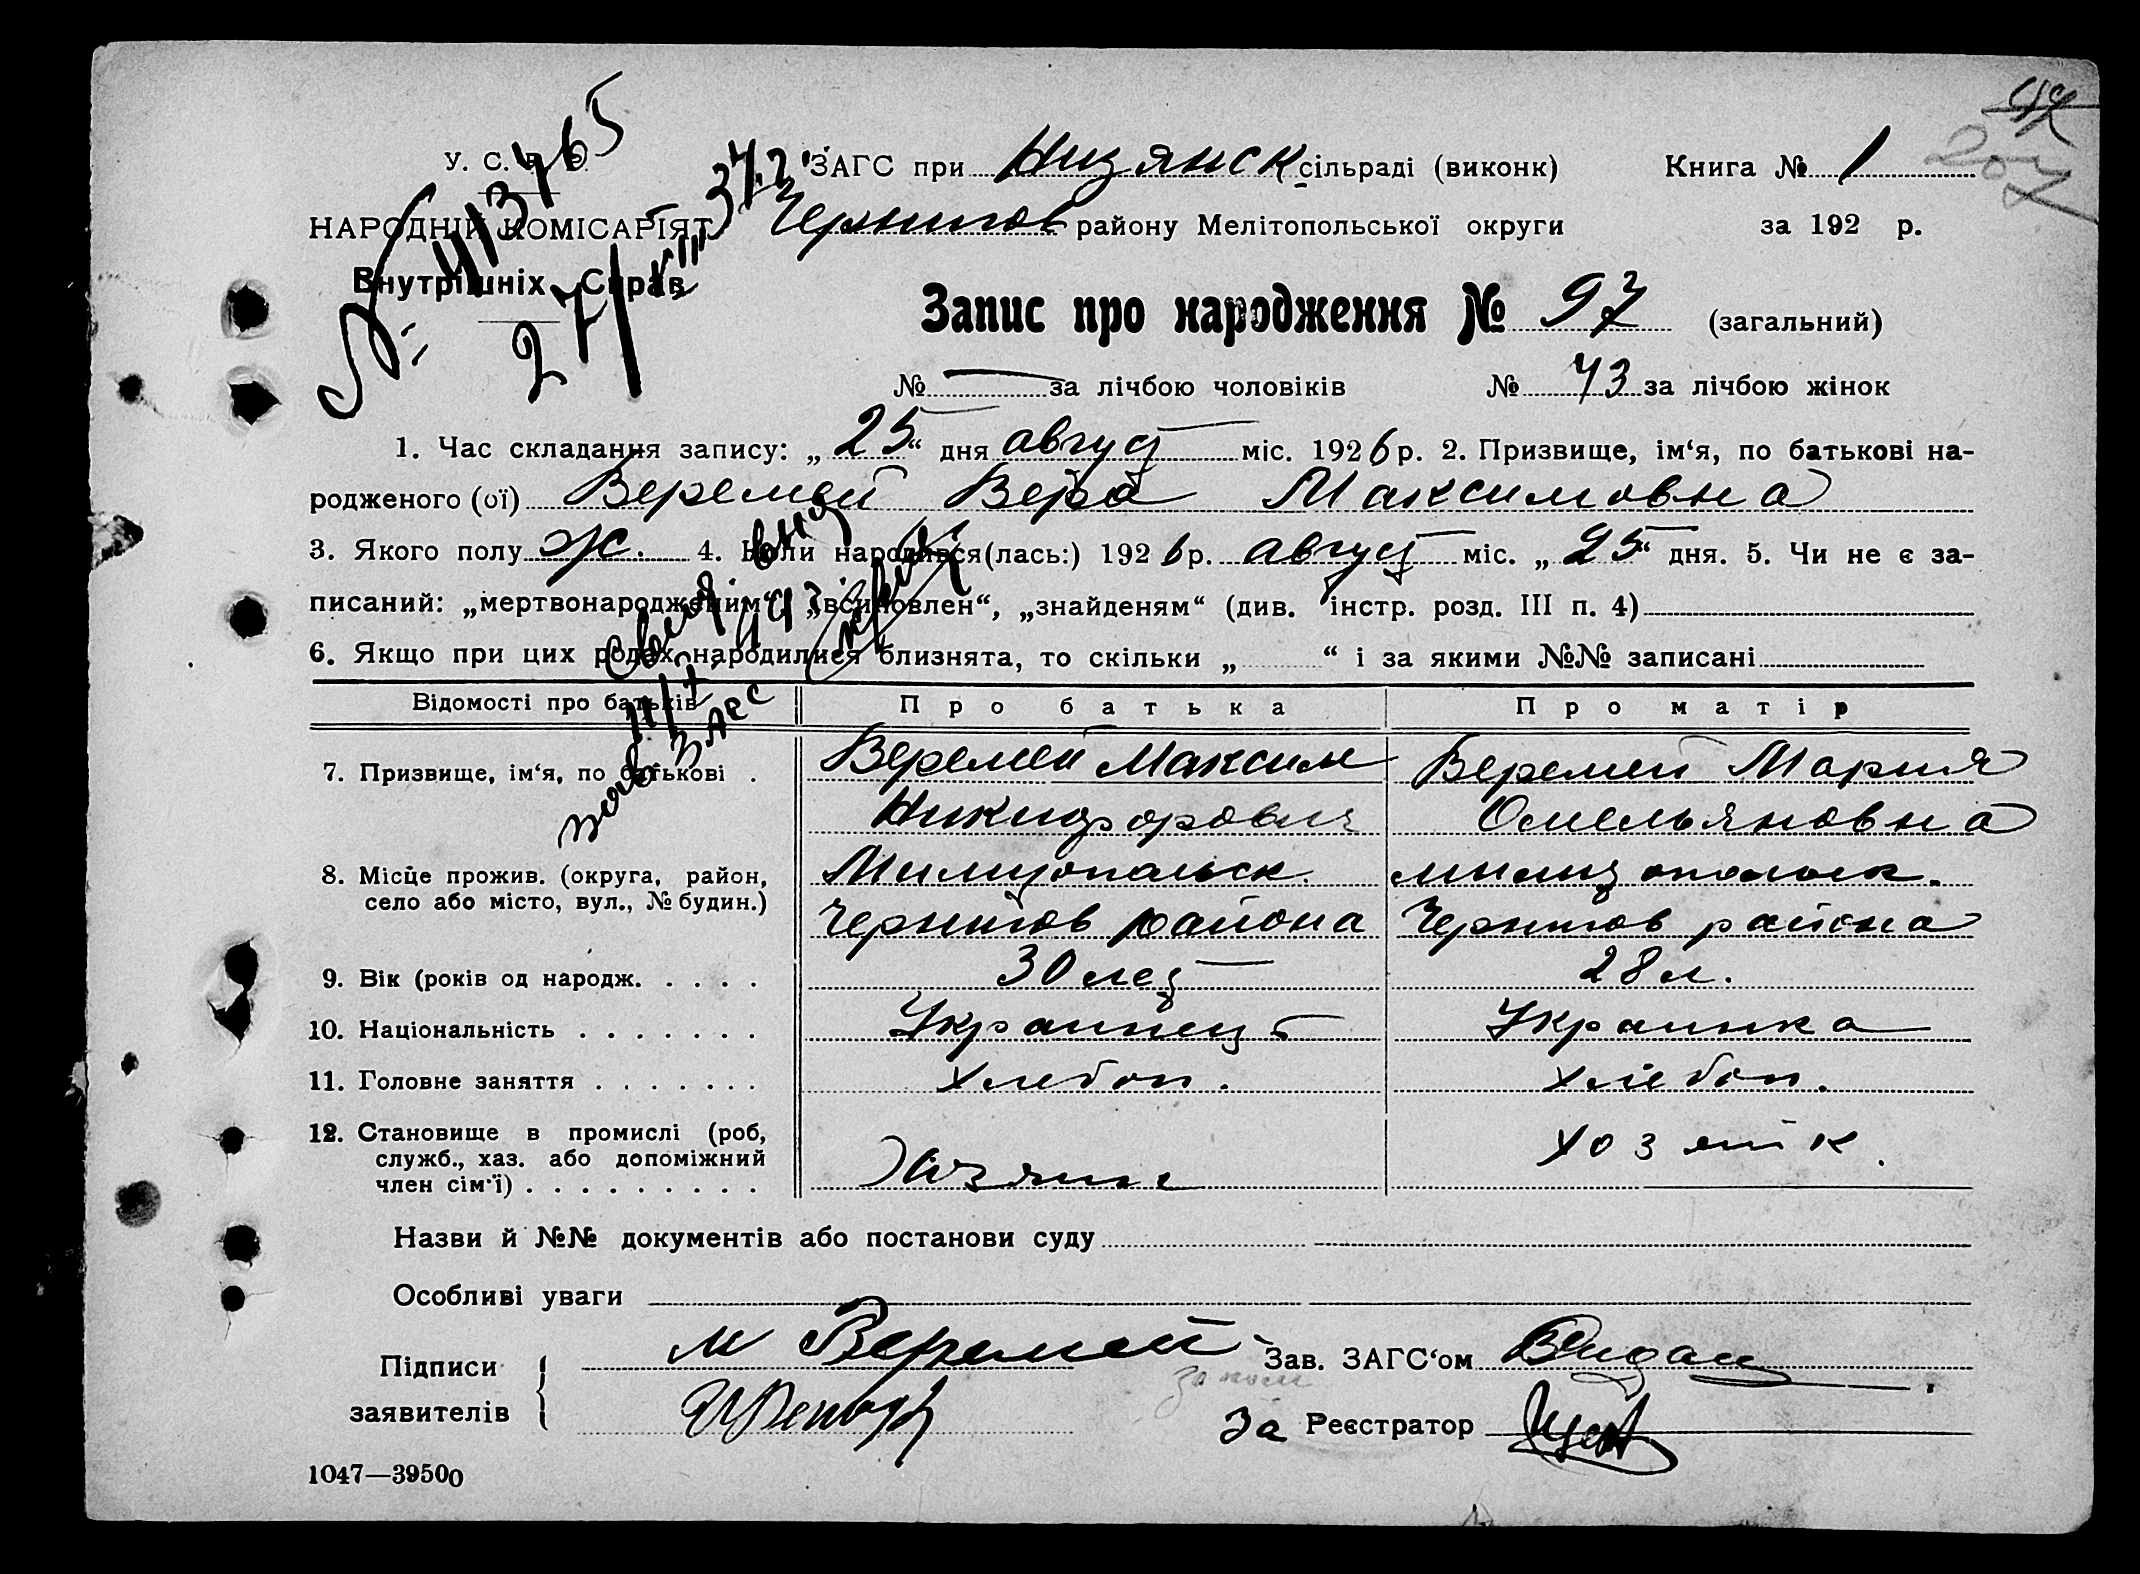 У. С. Р. Р.
ЗАГС при Низянск сільраді (виконк) Книга № 1
НАРОДНІЙ КОМІСАРІЯТ Чернигов району Мелітопольської округи за 192 р.
Внутрішніх Справ
№ 413465
27/VIII 37 г.
Запис про народження № 97 (загальний)
№ — за лічбою чоловіків № 43 за лічбою жінок
1. Час складання запису: „25“ дня август міс. 1926 р. 2. Призвище, ім‘я, по батькові на-
родженого (ої) Веремей Вера Максимовна
3. Якого полу ж. 4. Коли народився(лась:) 1926 р. август міс. „25“ дня. 5. Чи не є за-
писаний: „мертвонародженим“, „всиновлен“, „знайденям“ (див. інстр. розд. III п. 4)
6. Якщо при цих родах народилися близнята, то скільки „ “ і за якими №№ записані
Відомості про батьків Про батька Про матір
7. Призвище, ім‘я, по батькові . Веремей Максим Веремей Мария
Никифорович Омельяновна
8. Місце прожив. (округа, район, село або місто, вул., № будин.) Милитопольск. милитопольск.
Чернигов района Чернигов района
9. Вік (років од народж. . . . . 30 лет 28 л.
10. Національність . . . . . . . Украинец Украинка
11. Головне заняття . . . . . . . Хлебоп. хлебоп.
12. Становище в промислі (роб, служб., хаз. або допоміжний член сім‘ї) . . . . . . . . . Хозяин хозяйк.
Назви й №№ документів або постанови суду
Особливі уваги
Підписи заявителів М Веремей
Зав. ЗАГС‘ом
За Реєстратор
1047—39500